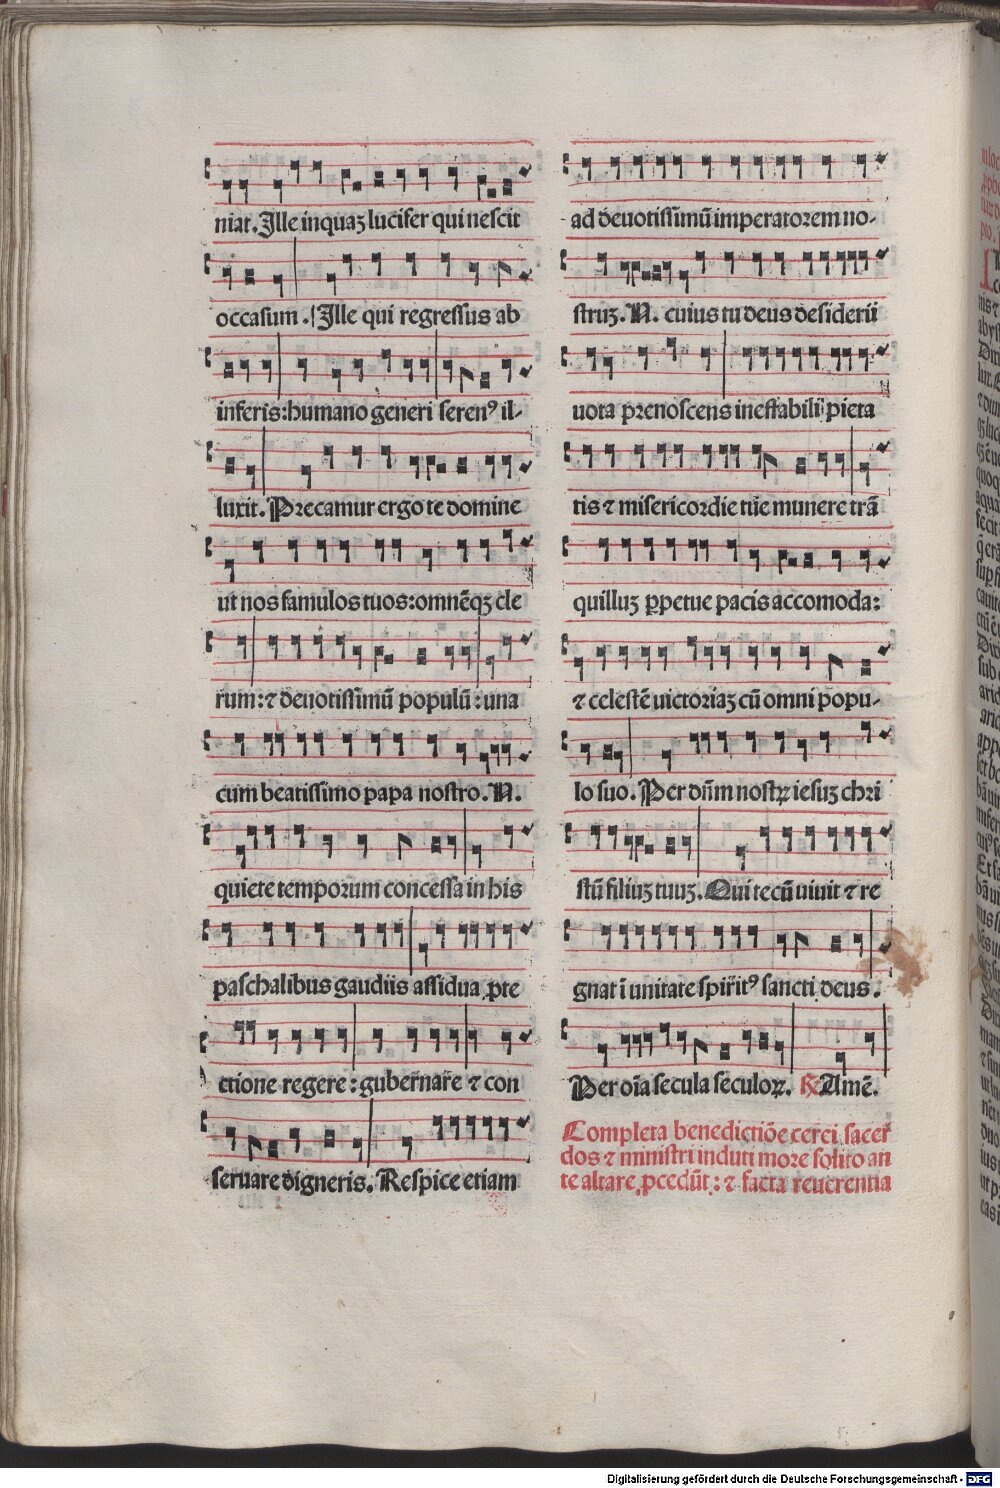 niat. Ille inquaꝫ lucifer qui nescit
occasum. Ille qui regressus ab
inferis: humano generi serenꝰ il-
luxit. Precamur ergo te domine
ut nos famulos tuos: omnēqꝫ cle
rum: ⁊ deuotissimū populū: una
cum beatissimo papa nostro. N.
quiete temporum concessa in his
paschalibus gaudiis assidua ꝓte
ctione regere: gubernare ⁊ con
seruare digneris. Respice etiam
ad deuotissimū imperatorem no-
struꝫ. N. cuius tu deus desiderii
uota prenoscens ineffabili pieta
tis ⁊ misericordie tue munere trā
quilluꝫ ꝑpetue pacis accomoda:
⁊ celestē uictoriaꝫ cū omni popu-
lo suo. Per dn̄m nostrꝫ iesuꝫ chri
stū filiuꝫ tuuꝫ. Qui tecū uiuit ⁊ re
gnat ī unitate spiritꝰ sancti deus.
Per oīa secula seculoꝝ. ℟ Amē.
Completa benedictiōe cerei sacer
dos ⁊ ministri induti more solito an
te altare ꝓcedūt: ⁊ facta reuerentia
Digitalisierung gefördert durch die Deutsche Forschungsgemeinschaft - DFG